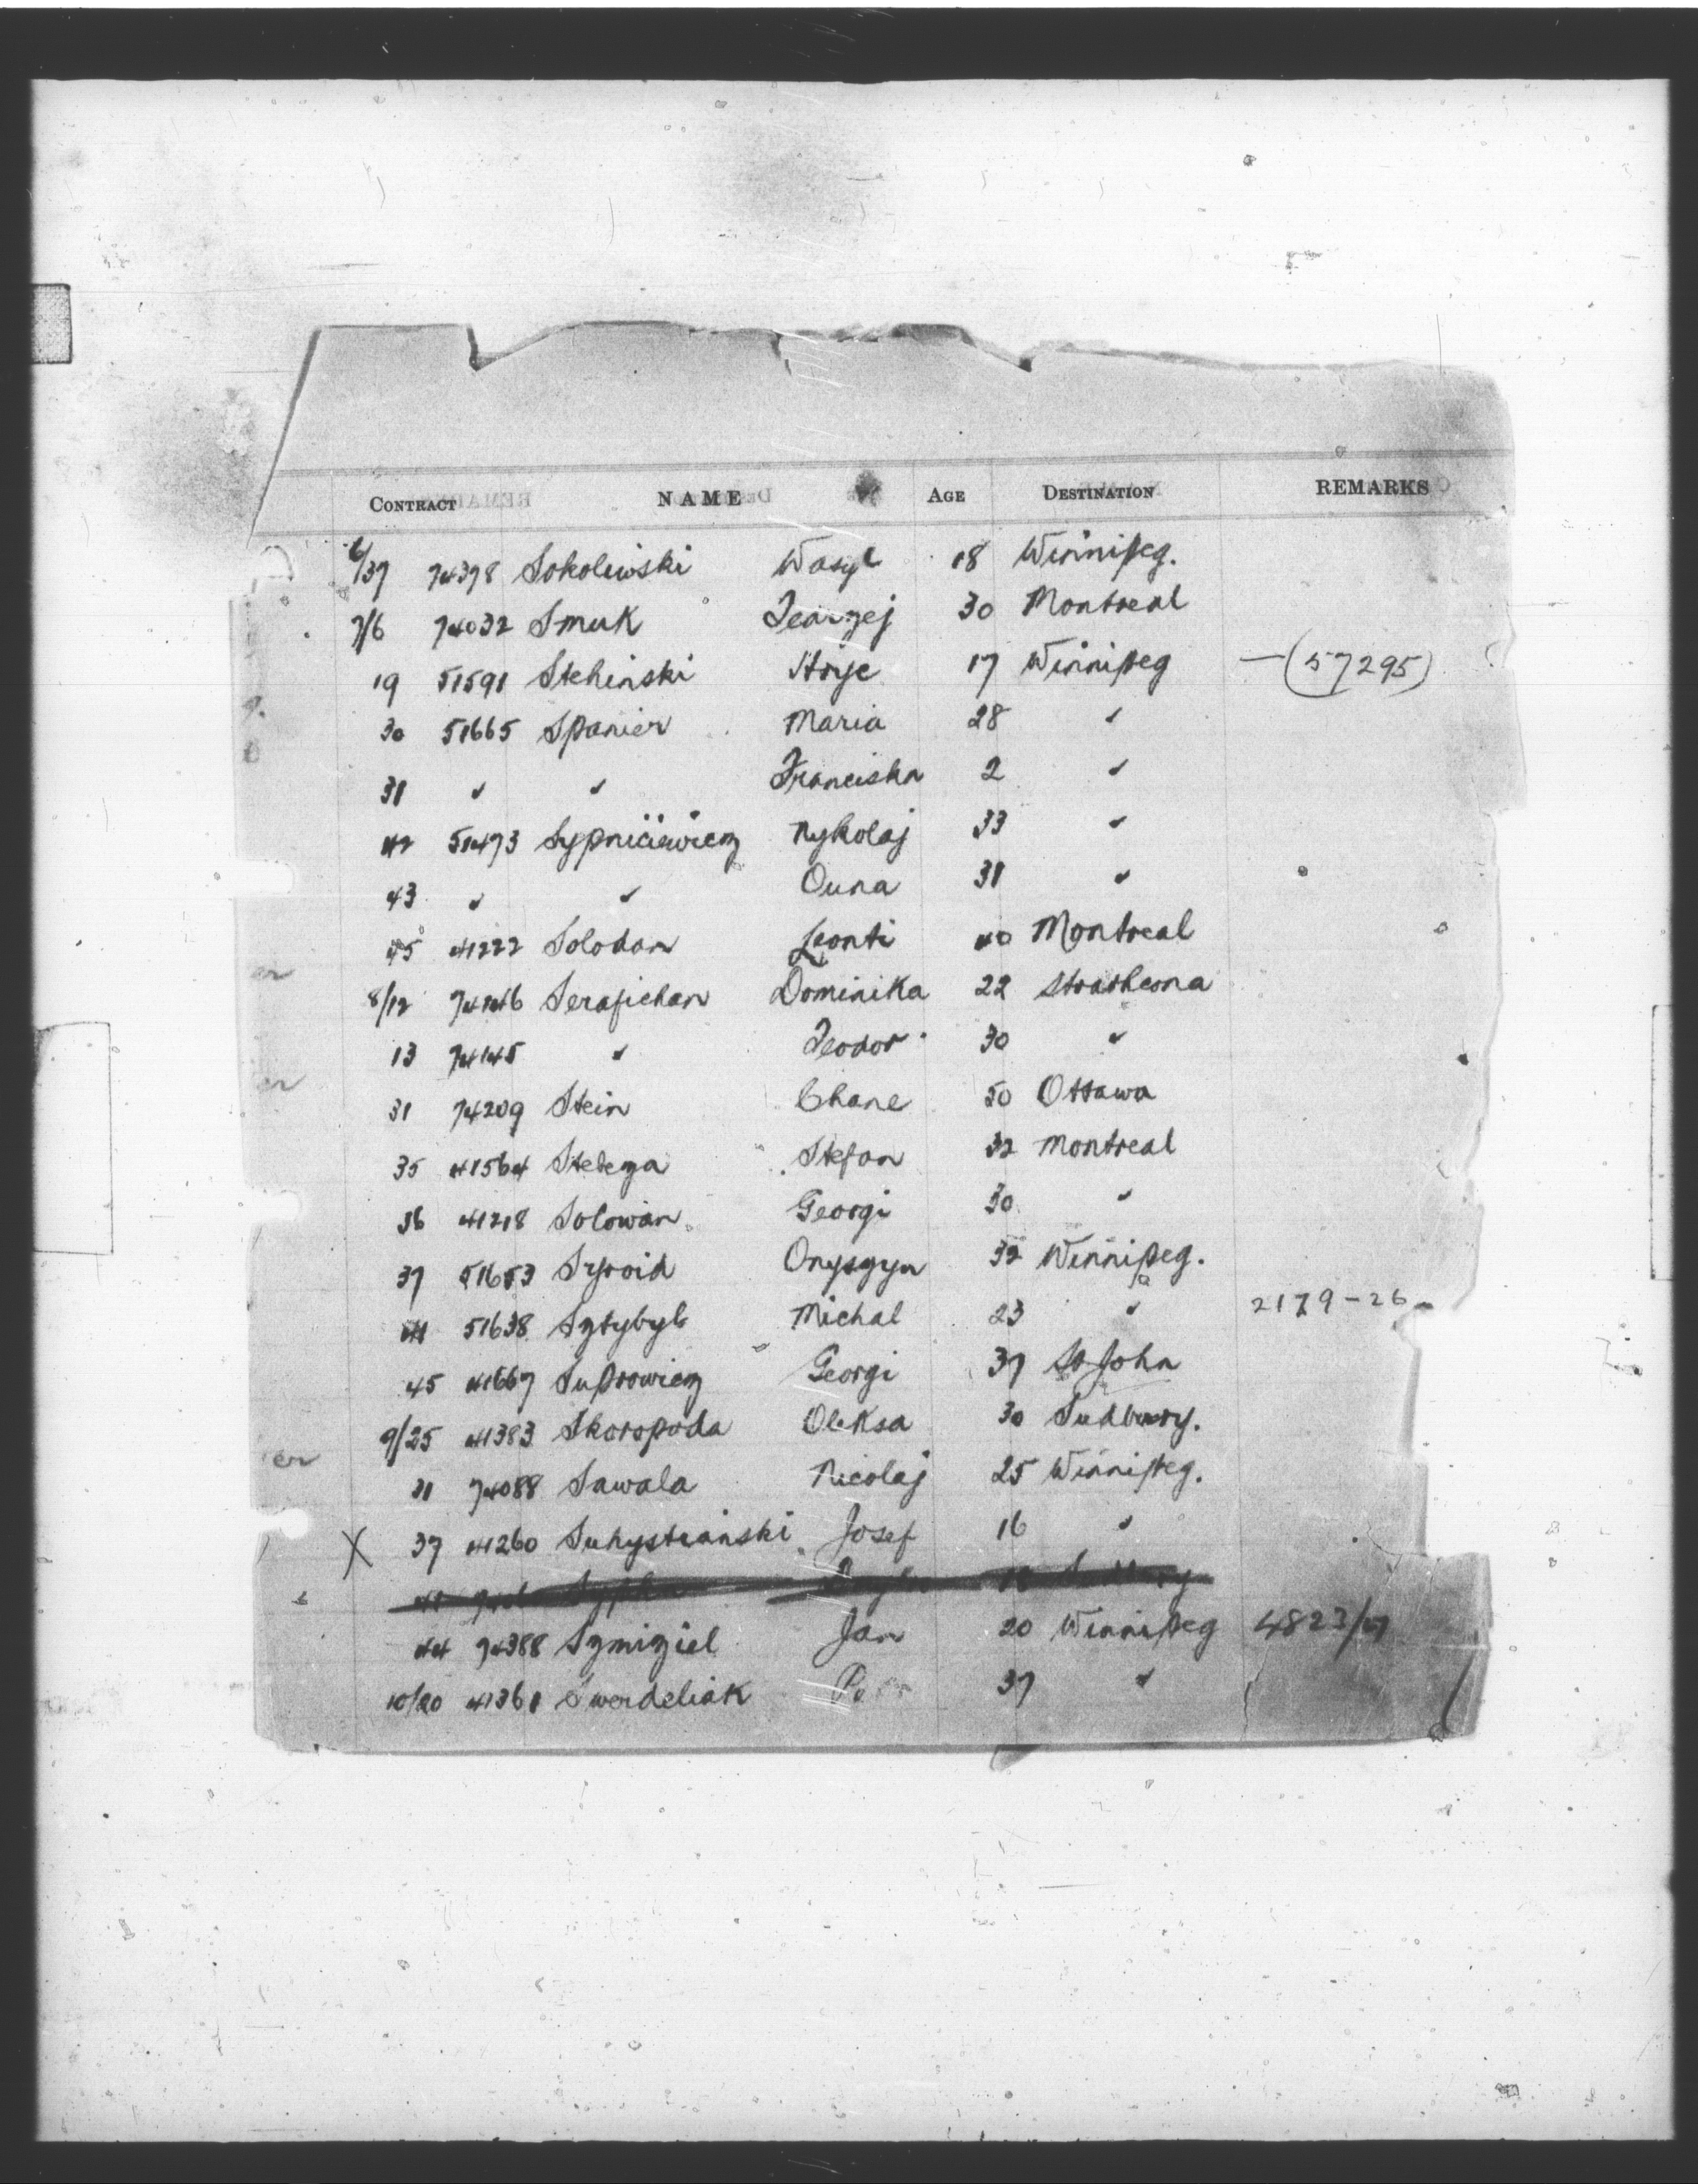 CONTRACT NAME AGE DESTINATION REMARKS
6/37 74378 Sokoliwski Wasyl 18 Winnipeg.
7/6 74032 Smuk Jedrzej 30 Montreal
19 51591 Stehinski Hryc 17 Winnipeg —(57295)
30 51665 Spanier Maria 28 "
31 " " Franciska 2 "
42 51473 Sypniciewicz Mykolaj 33 "
43 " " Ouna 31 "
45 41222 Solodan Leonti 40 Montreal
8/12 74146 Serafichan Dominika 22 Strathcona
13 74145 " Teodor 30 "
31 74209 Stein Chane 50 Ottawa
35 41564 Stebeza Stefan 32 Montreal
36 41218 Solowan Georgi 30 "
37 51653 Onyszyn 32 Winnipeg.
41 51638 Sztybyl Michal 23 " 2179-26
45 41667 Suprowicz Georgi 37 St John
9/25 41383 Skoropoda Oleksa 30 Sudbury.
31 74088 Sawala Nicolaj 25 Winnipeg.
X 37 41260 Suhystianski Josef 16 "
44 74388 Szmiziel Jan 20 Winnipeg 4823/07
10/20 41361 Swerdeliak 37 "